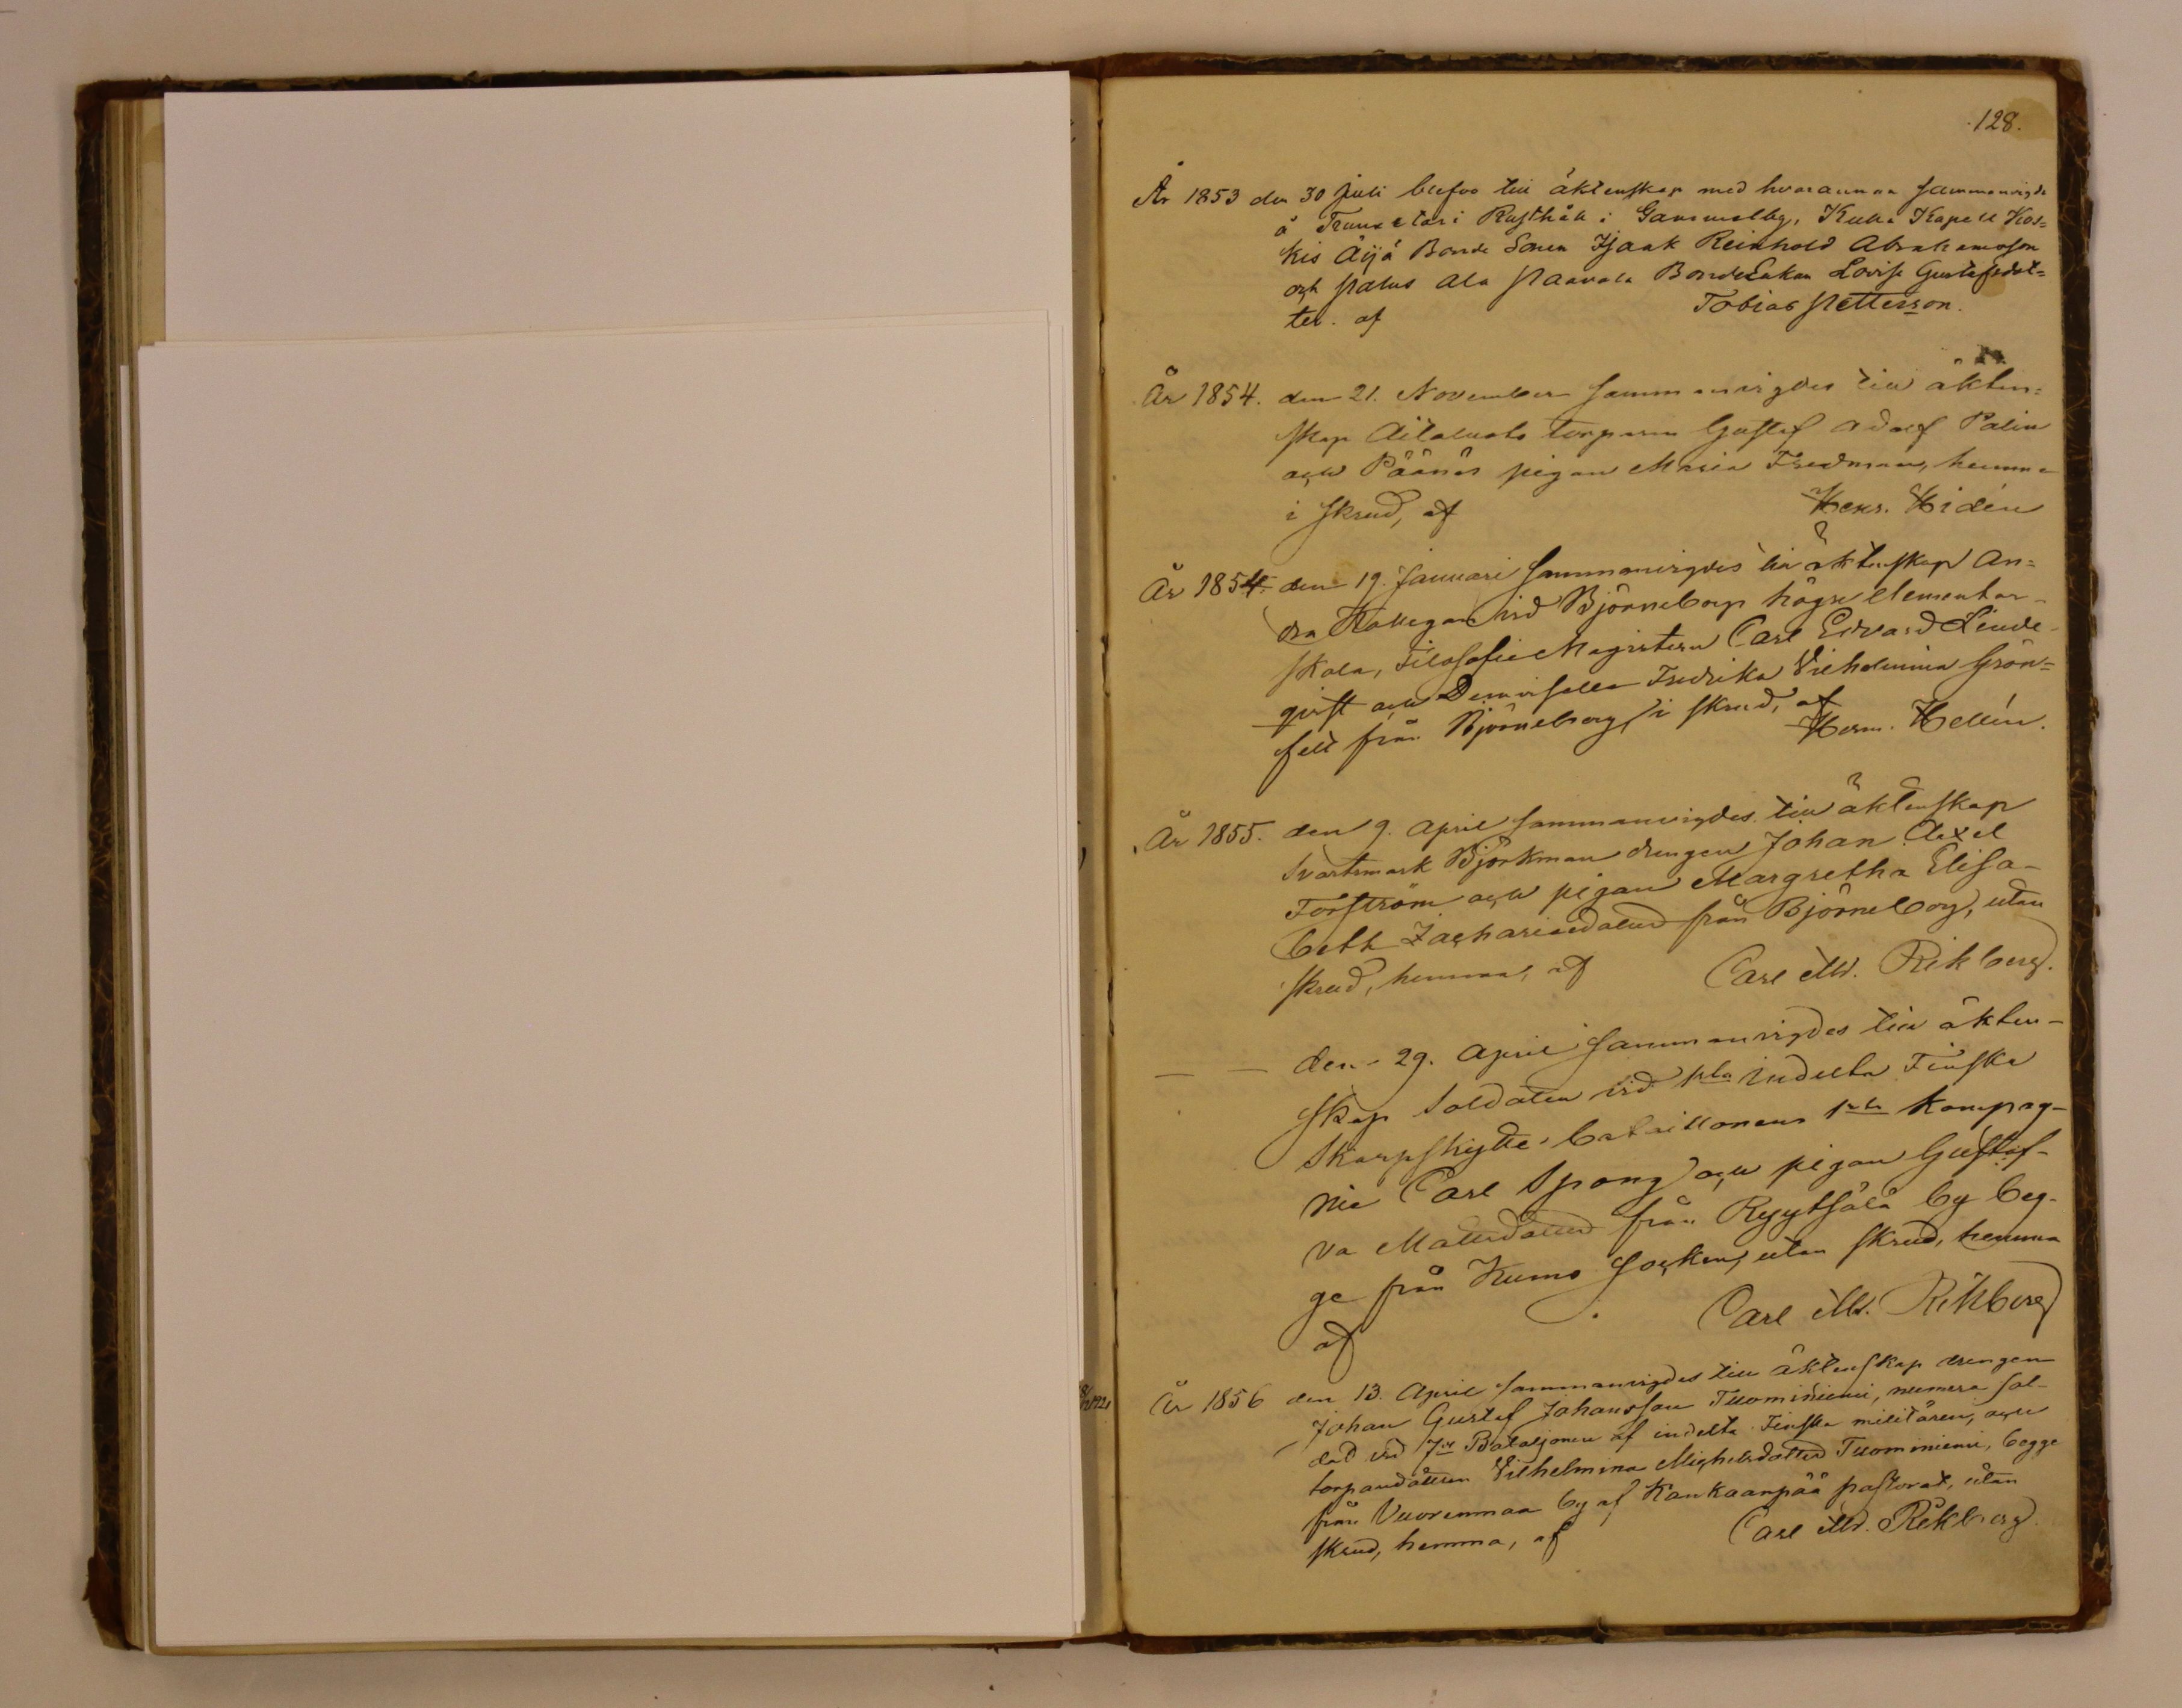 128.
År 1853 den 30 Juli blefvo till äktenskap med hvarannan sammanvigde
å Rusthåll i Gammelby, Kulla Kapell Kos=
kis Äijä Bonde Sonen Isaak Reinhold Abrahamsson
och Ala Naavala Bonde Enkan Lovisa Gustafsdot=
ter. af Tobias Petterson.
År 1854. den 21. November sammanvigdes till äkten=
skap torparen Gustaf Adolf Palin
och Päänäs pigan Maria Fredman, hemma
i skrud, af Henr. Hidén
År 1854. den 19. Januari sammanvigdes till äktenskap An=
dra Kollegan vid Björneborgs högre elementar-
skola, Filosofie Magistern Carl Edvard Linde-
qvist och Demoisella Fredrika Vilhelmina Grön=
felt från Björneborg, i skrud, af
Herm. Hellén.
År 1855. den 9. April sammanvigdes till äktenskap
Svartsmark Björkman drengen Johan Axel
Forsström och pigan Margretha Elisa-
beth Zachariædotter från Björneborg, utan
skrud, hemma, af Carl M. Rikberg.
— — den 29. April sammanvigdes till äkten-
skap Soldaten vid 1sta indelta Finska
Skarpskytte-bataillonens 1sta Kompag-
nie Carl Spong och pigan Gustaf-
va Mattsdotter från Ryytsälä by beg-
ge från Kumo Socken, utan skrud, hemma
af Carl M. Rikberg
År 1856 den 13. April sammanvigdes till äktenskap drengen
Johan Gustaf Johansson Tuominiemi, numera sol-
dad vid 7de Bataljonen af indelta Finska militären, och
torparedottren Vilhelmina Michelsdotter Tuominiemi, begge
från Vuorenmaa by af Kankaanpää pastorat, utan
skrud, hemma, af Carl M. Rikberg.